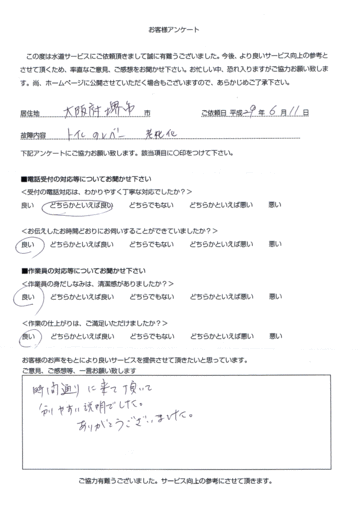 お客様アンケート
この度は水道サービスにご依頼頂きまして誠に有難うございました。今後、より良いサービス向上の参考と
させて頂くため、率直なご意見、ご感想をお聞かせ下さい。お忙しい中、恐れ入りますがご協力お願い致しま
す。尚、ホームページに公開させていただく場合もございますので、あらかじめご了承下さい。
居住地 大阪府堺市 市 ご依頼日 平成29年6月11日
故障内容 トイレのレバー 老朽化
下記アンケートにご協力お願い致します。該当項目に○印をつけて下さい。
■電話受付の対応等についてお聞かせ下さい
<受付の電話対応は、わかりやすく丁寧な対応でしたか?>
良い どちらかといえば良い どちらでもない どちらかといえば悪い 悪い
<お伝えしたお時間どおりにお伺いすることができていましたか?>
良い どちらかといえば良い どちらでもない どちらかといえば悪い 悪い
■作業員の対応等についてお聞かせ下さい
<作業員の身だしなみは、清潔感がありましたか?>
良い どちらかといえば良い どちらでもない どちらかといえば悪い 悪い
<作業の仕上がりは、ご満足いただけましたか?>
良い どちらかといえば良い どちらでもない どちらかといえば悪い 悪い
お客様のお声をもとにより良いサービスを提供させて頂きたいと思っています。
ご意見、ご感想等、一言お願い致します
時間通りに来て頂いて
分りやすい説明でした。
ありがとうございました。
ご協力有難うございました。サービス向上の参考にさせて頂きます。